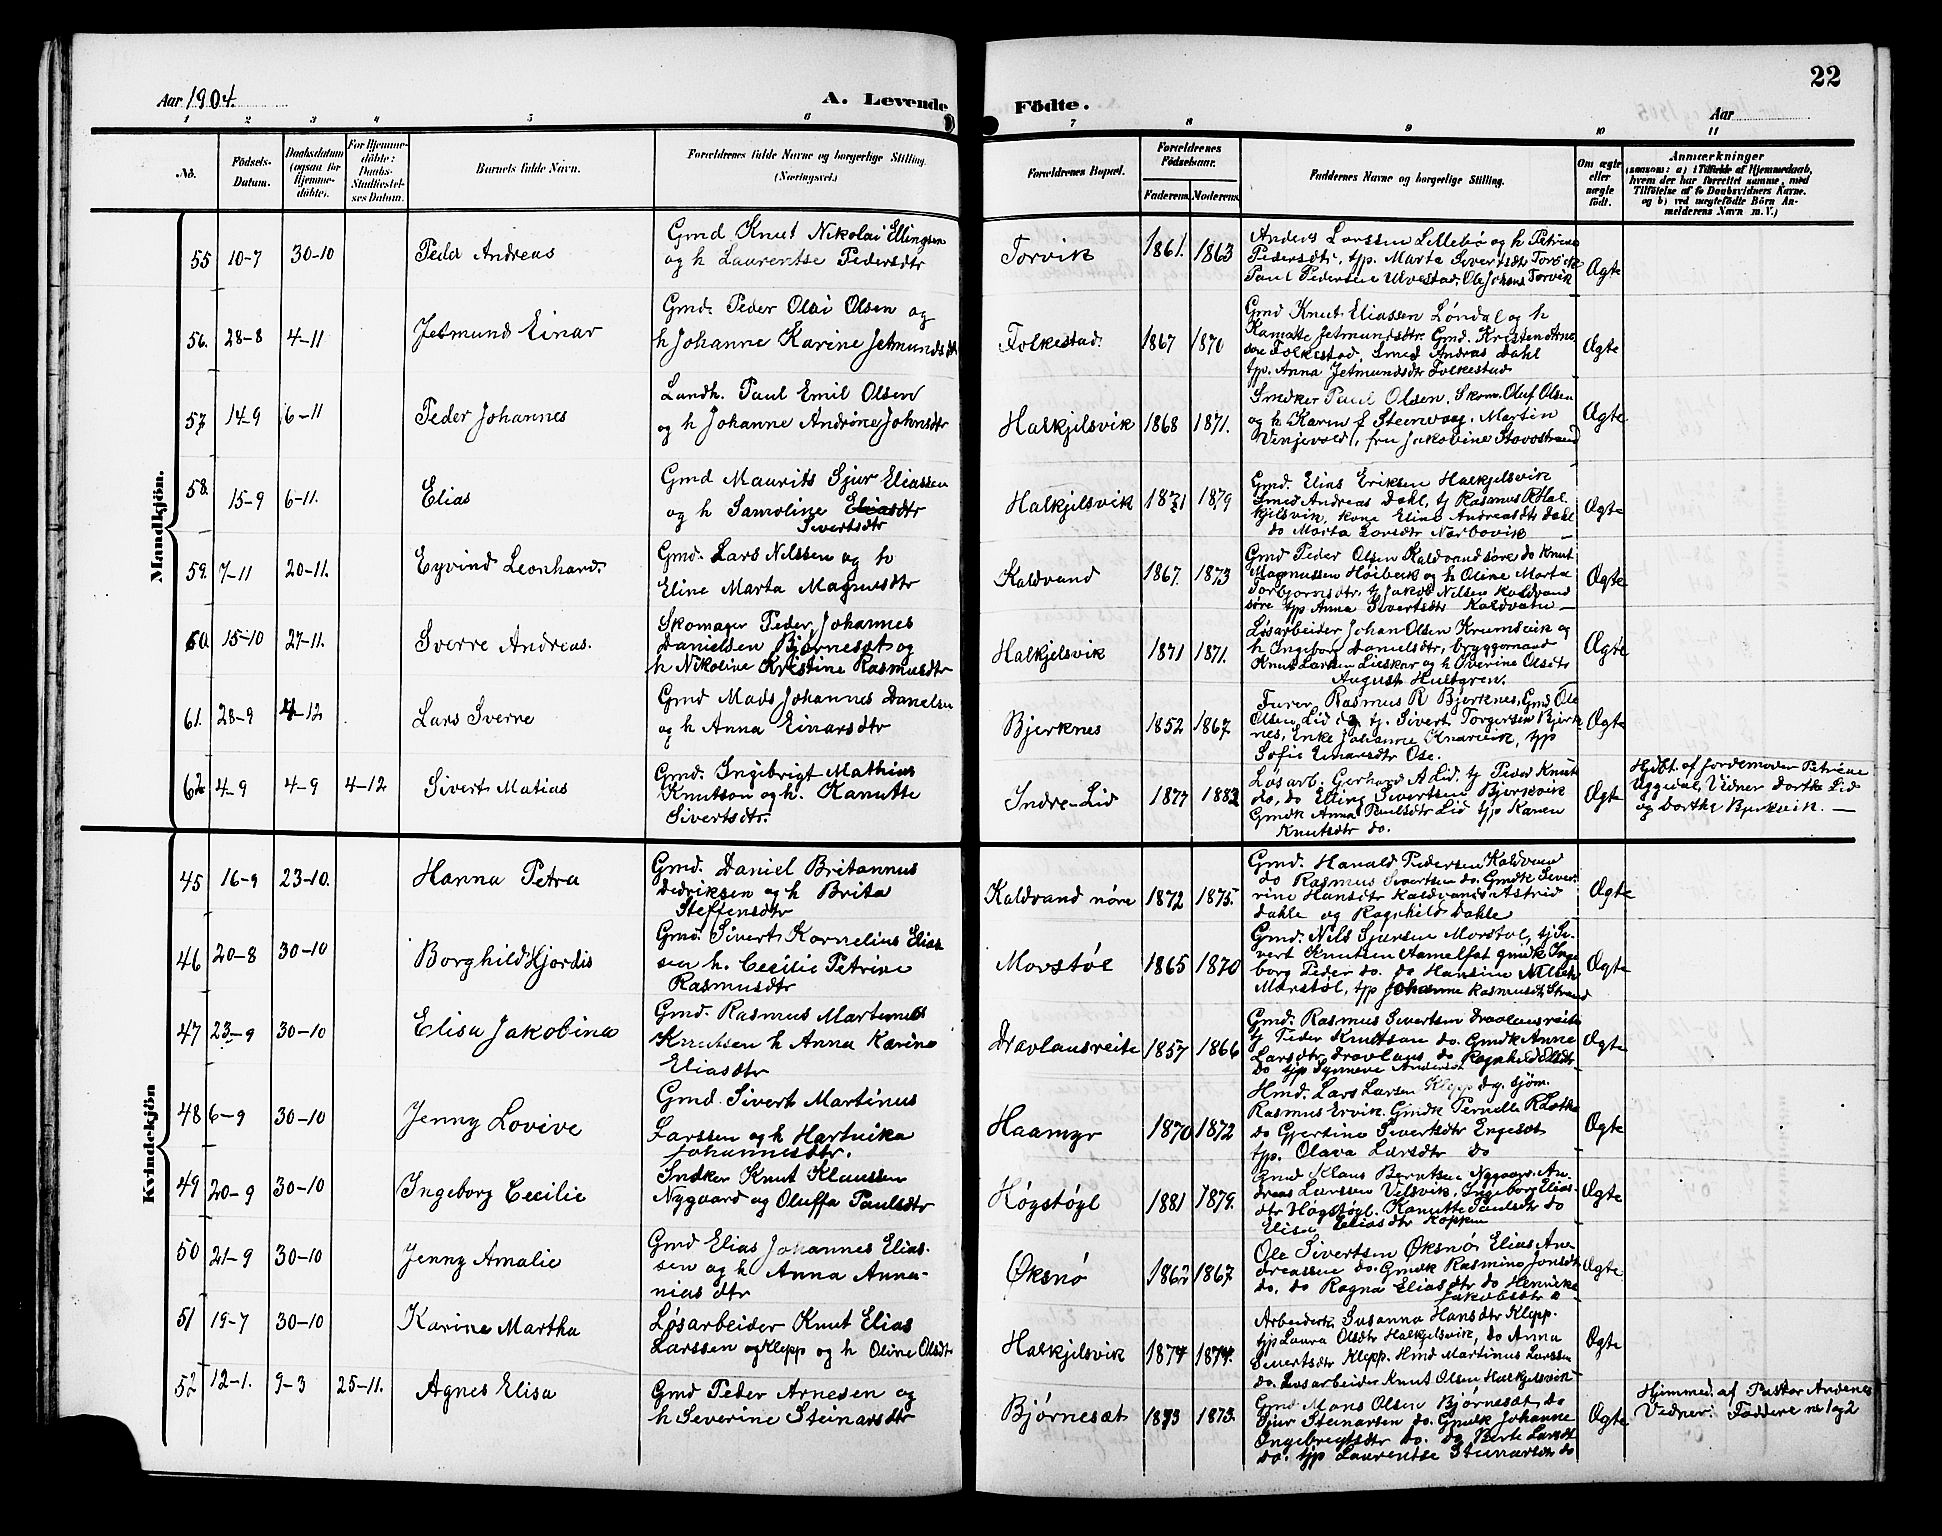 22
Aar 1904.
A. Levende Födte.
Aar
1 2 3 4 5 6 7 8 9 10 11
No.
Födsels-Datum.
Daabsdatum (ogsaa for Hjemme-döbte).
For Hjemme-döbte: Daabs-Stadfæstel-ses Datum.
Barnets fulde Navn.
Forældrenes fulde Navne og borgerlige Stilling. (Næringsvei.)
Forældrenes Bopæl.
Forældrenes Födselsaar.
Faderens. Moderens.
Faddernes Navne og borgerlige Stilling.
Om ægte eller uægte födt.
Anmærkninger
(saasom: a) i Tilfælde af Hjemmedaab,
hvem der har forrettet samme, med
Tilföielse af to Daabsvidners Navne.
og b) ved uægtefödte Börn An-
melderens Navn m. V.)
Mandkjön.
55 10-7 30-10 Peder Andreas
Gmd Knut Nikolai Ellingsen
og h Laurentse Pedersdtr
Torvik 1861. 1863
Anders Larssen Lillebø og h Petrine
Pedersdtr, tjp. Marta Sivertsdtr Torvik
Paul Pedersen Ulvestad, Ole Johans Torvik
Ægte
56. 28-8 4-11 Jetmund Einar
Gmd. Peder Olai Olsen og
h Johanne Karine Jetmundsdtr
Folkestad. 1867 1870
Gmd Knut Eliassen Løndal og h
Kanutte Jetmundsdtr. Gmd. Kristen Arne
sen Folkestad, Smed Andras Dahl
tjp. Anna Jetmundsdtr Folkestad
Ægte
57 14-9 6-11 Peder Johannes
Landh. Paul Emil Olsen
og h Johanne Andrine Johnsdtr
Halkjelsvik 1868 1871.
Smedker Paul Olsen, Skom. Oluf Olsen
og h Karen f Steenvaag, Martin
Vinjevold, fru Jakobine Stovostrand
Ægte
58. 15-9 6-11. Elias
Gmd Maurits Sjur Eliassen
og h Samoline Eliasdtr
Sivertsdtr
Halkjelsvik 1871 1879
Gmd. Elias Eriksen Halkjelsvik
Smed Andreas Dahl, tj Rasmus R Hal
kjelsvik, kone Eline Andreasdtr Dahl
do Marta Larsdtr Narbovik
Ægte
59. 7-11 20-11. Eyvind Leonhard.
Gmd. Lars Nilssen og h
Eline Marta Magnusdtr
Kaldvand 1867. 1873
Gmd Peder Olsen Kaldvand søre do Knut
Magnussen Høibeck og h Oline Marta
Torbjornsdtr, tj Jakob Nilsen Kaldvand
søre tjp Anna Sivertsdtr Kaldvatn —
Ægte
60. 15-10 27-11. Sverre Andreas.
Skomager Peder Johannes
Danielsen Bjørnesæt og
h Nikoline Kristine Rasmusdtr
Halkjelsvik 1871 1871.
Løsarbeider Johan Olsen Krumsvik og
h Ingeborg Danielsdtr, bryggemand
Knut Larsen Lieskar og h Overine Olsdtr
August Hultgren.
Ægte
61. 28-9 4-12 Lars Sverre
Gmd Mads Johannes Danielsen
og h Anna Einarsdtr
Bjerknes 1852 1867.
Furer, Rasmus R Bjerknes, Gmd Ole
Olsen Lid dg tj. Sivert Torgersen Bjerk
nes, Enke Johanne Knarvik, tjp
Sofie Einarsdtr Ose.
Ægte
62 4-9 4-9 4-12 Sivert Matias
Gmd. Ingebrigt Mathias
Knutson og h. Kanutte
Sivertsdtr.
Indre-Lid 1877 1882
Løsarb. Gerhard A Lid. tj Peder Knut
do, do Elling Sivertsen Bjerkvik
Gmdk Anna Paulsdtr Lid tjp Karen
Knutsdtr do.
Ægte
Hjdbt. af Jordemoder Petrine
Uggedal, Vidner Dorthe Lid
og Dorthe Bjerkvik. —
Kvindekjön
45 16-9 23-10. Hanna Petra
Gmd. Daniel Britannus
Didriksen og h Brita
Steffensdtr
Kaldvand nøre 1872 1875.
Gmd. Harald Pedersen Kaldvand
do Rasmus Sivertsen do. Gmdk Seve-
rine Hansdtr Kaldvand Astrid
Dahle og Ragnhild Dahle
Ægte
46 20-8 30-10 Borghild Hjordis
Gmd Sivert Kornelius Elias
sen h. Cecilie Petrine
Rasmusdtr
Morstøl 1865 1870
Gmd. Nils Sjursen Morstøl, tj Si-
vert Knutsen Aamelfot gmdk Inge
borg Peder do. do Hansine Nilsdtr
Morstøl, tjp Johanne Rasmusdtr Strand
Ægte
47 23-9 30-10 Elisa Jakobina
Gmd. Rasmus Martinus
Knutsen h Anna Karine
Eliasdtr
Dravlausreite 1857 1866
Gmd. Rasmus Sivertsen Dravlausreite
tj Peder Knutson do. Gmdk Anne
Larsdtr Dravlaus do Ragnhild Olsdtr
do tjp Synneve Andersdtr
Ægte
48 6-9 30-10 Jenny Lovive
Gmd. Sivert Martinus
Larssen og h Hartvika
Johannesdtr.
Haamyr 1870 1872
Hmd. Lars Larsen Klepp dg. sjøm.
Rasmus Ervik. Gmdk Pernelle R Lotke
do Gjertine Sivertsdtr Engeset
tjp. Olava Larsdtr do
Ægte
49 20-9 30-10 Ingeborg Cecilie
Snedker Knut Klaussen
Nygaard og Oluffa Paulsdtr
Høgstøyl 1881 1879.
Gmd Klaus Berntsen Nygaard An-
dreas Larssen Velsvik, Ingeborg Elias-
dtr Høgstøyl. Kanutte Paulsdtr do
Elise Eliasdtr Koppen
Ægte
50 21-9 30-10 Jenny Amalie
Gmd Elias Johannes Elias-
sen og h Anna Anna-
nias dtr
Øksnø 1862 1867
Ole Sivertsen Øksnø Elias An-
dreassen do. Gmdk Rasmine Jonsdtr
do, do Ragna Eliasdtr do Henrikke
Jakobsdtr o
Ægte
51 19-7 30-10 Karine Martha
Løsarbeider Knut Elias
Larssen og Klepp og h Oline Olsdtr
Halkjelsvik 1874 1874.
Arbeiderk Susanna Hansdtr Klepp.
tjp Laura Olsdtr Halkjelsvik, do Anna
Sivertsdtr Klepp. Hmd Martinus Larssen
do. Løsarbeider Knut Olsen Halkjelsvik
Ægte
52 12-1. 9-3 25-11. Agnes Elisa
Gmd Peder Arnesen og
h Severine Steinarsdtr
Bjørnesæt 1873 1873.
Gmd Mons Olsen Bjørnesæt, do
Sjur Steinarsen do. Gmdk Johanne
Ingebregtsdtr do. do Berte Larsdt
do. tjp Laurentse Steinarsdtr do
Ægte
Hjemmed. af Pastor Andenes
Vidner: Faddere no 1 og 2